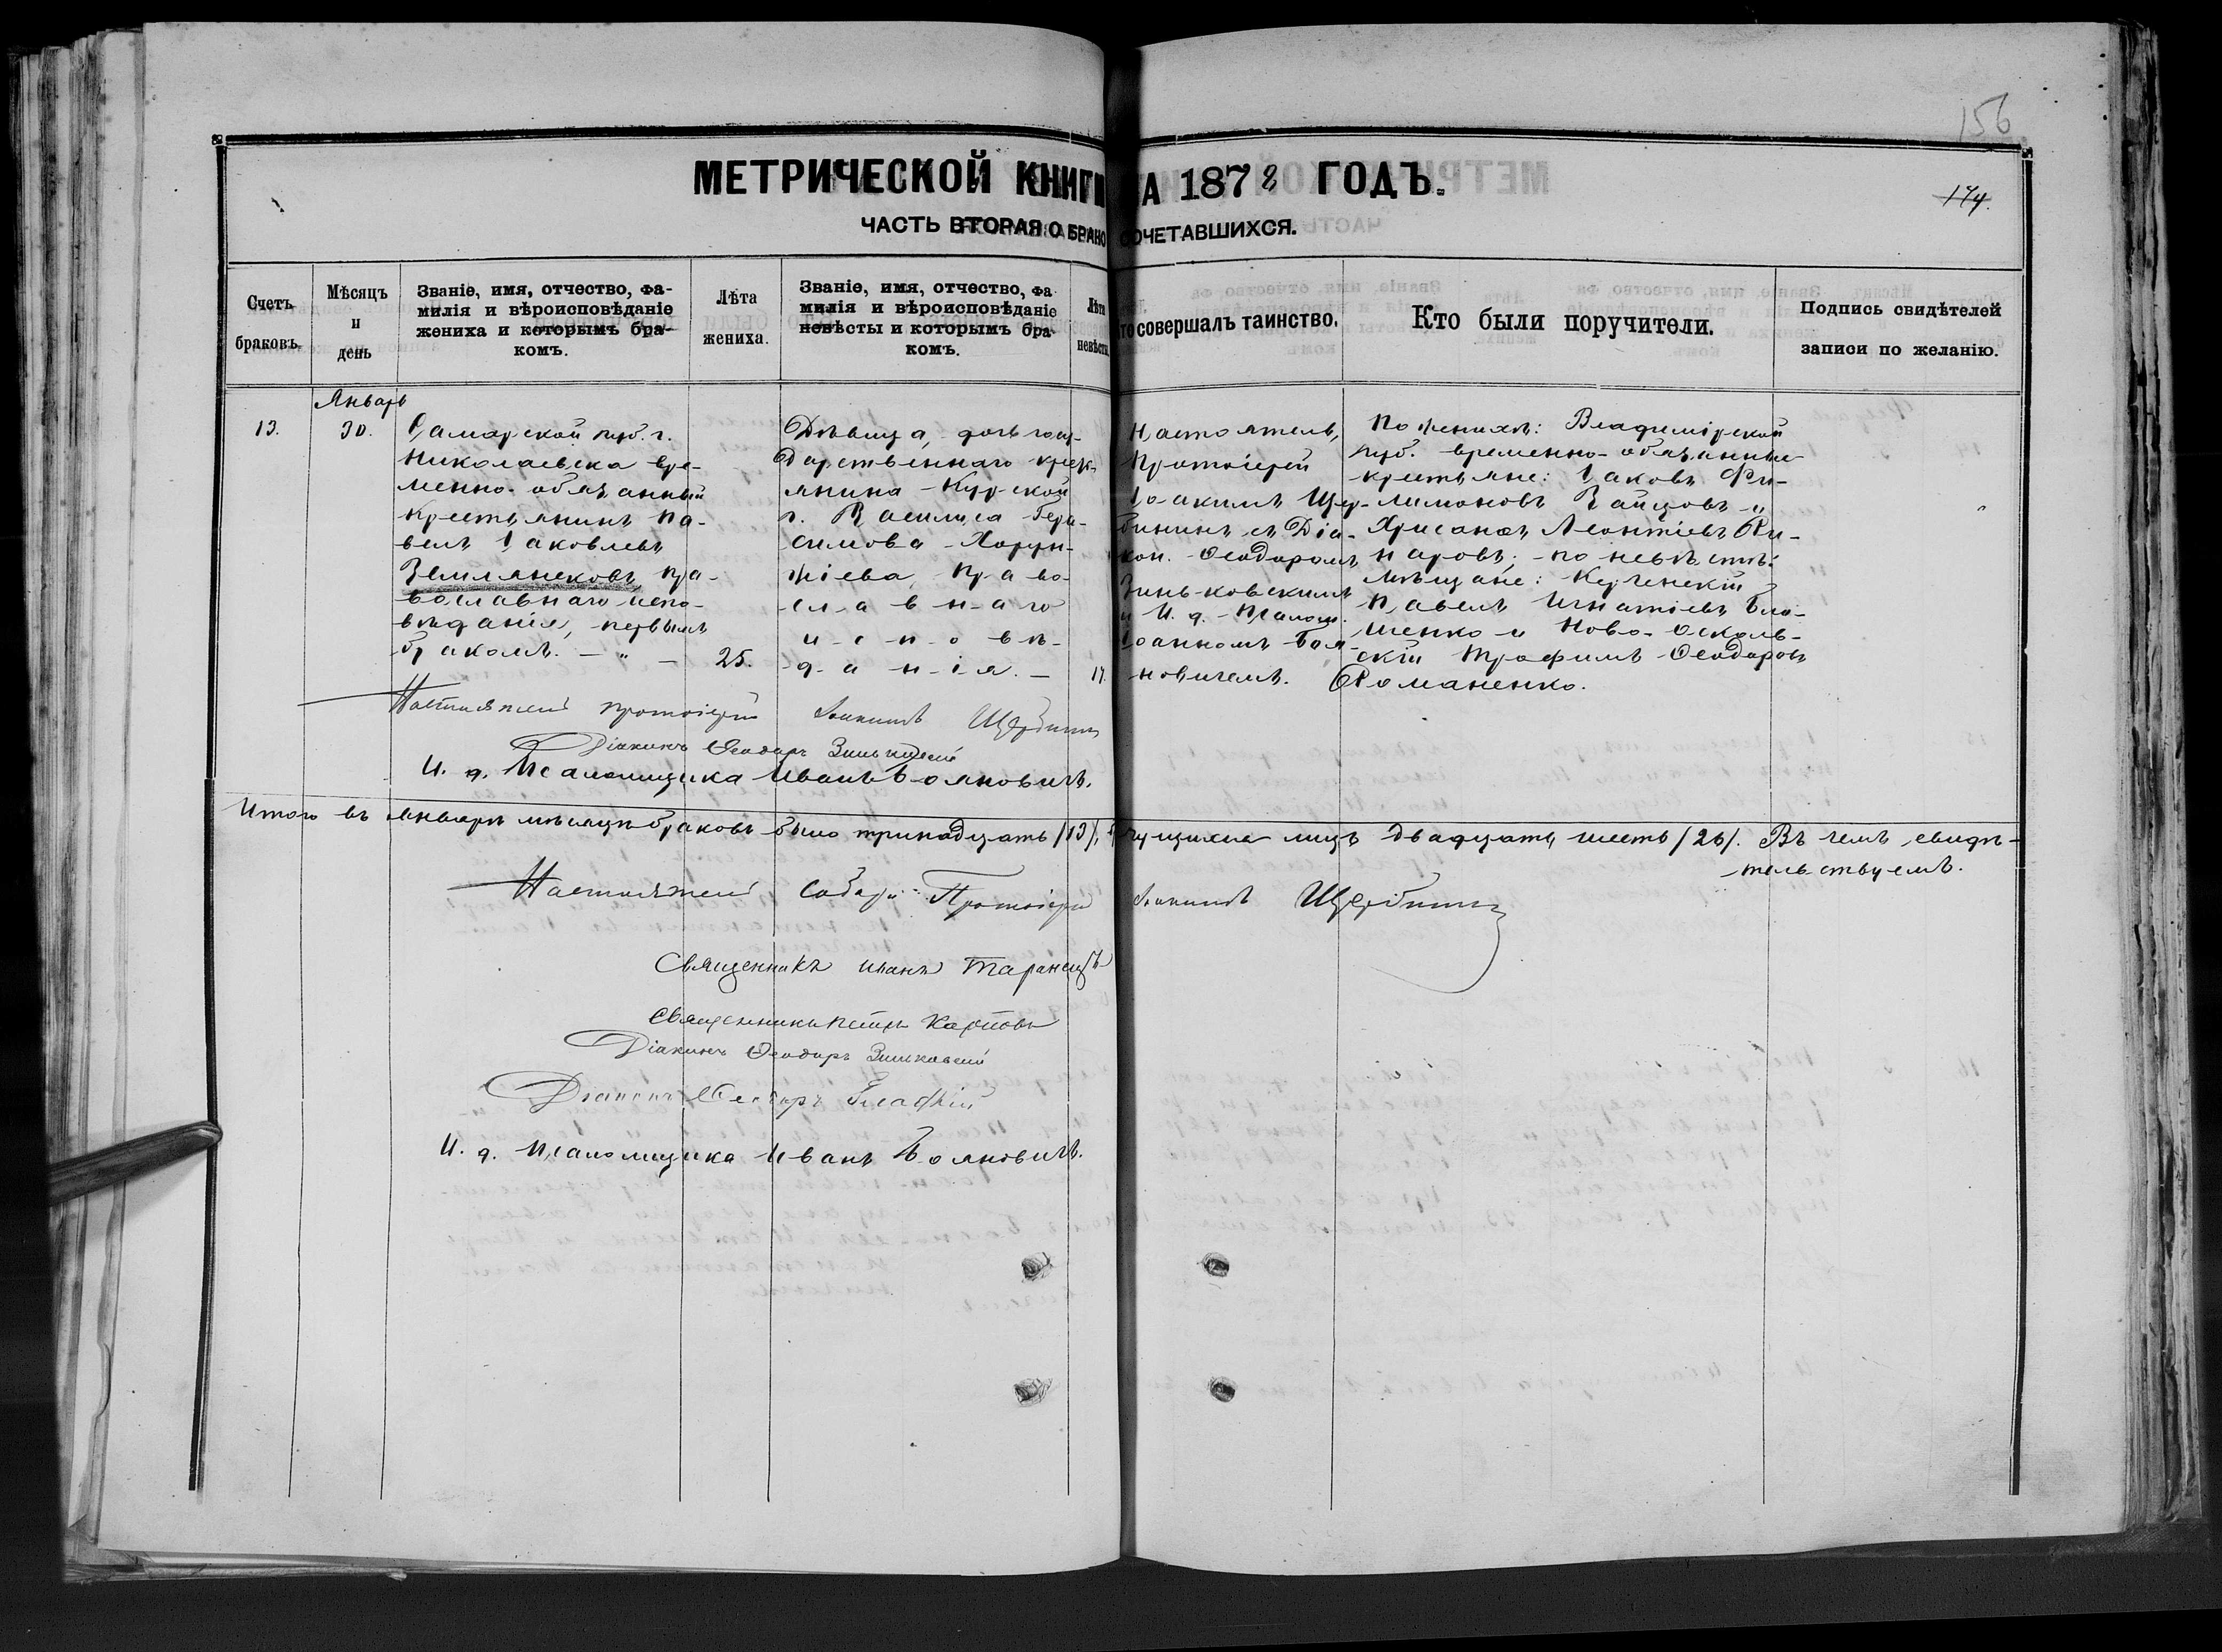 156
МЕТРИЧЕСКОЙ КНИГИ НА 1878 ГОДЪ.
174.
ЧАСТЬ ВТОРАЯ О БРАКОСОЧЕТАВШИХСЯ.
Счетъ браковъ.
Мѣсяцъ и день
Званіе, имя, отчество, фа-
милія и вѣроисповѣданіе
жениха и которымъ бра-
комъ.
Лѣта жениха.
Званіе, имя, отчество, фа
милія и вѣроисповѣданіе
невѣсты и которымъ бра-
комъ.
Лѣта невѣсты
Кто совершалъ таинство.
Кто были поручители.
Подпись свидѣтелей
записи по желанію.
13.
Январь
30.
Самарской губ. г.
Николаевска вре-
менно-обязанный
крестьянинъ Па-
велъ Іаковлевъ
Землянсковъ, пра-
вославнаго испо-
вѣданія, первымъ
бракомъ. — „ —
25.
Дѣвица, дочь госу-
дарственнаго крест-
янина Курской
г. Василиса Гера-
симова Хорун-
жіева, право-
славнаго
исповѣ-
данія. —
17.
Настоятель,
Протоіерей
Іоакимъ Щер-
бининъ съ Діа-
кон. Ѳеодоромъ
Зиньковскимъ
и И. д. Псалом.
Іоанномъ Боя-
новичемъ.
По женихѣ: Владимірской
губ. временно-обязанные
крестьяне: Іаковъ Фи-
лимоновъ Зайцовъ и
Хрисанѳъ Леонтіевъ
наровъ; по невѣстѣ:
мѣщане: Купенскій
Павелъ Игнатіевъ
шенко и Ново-Осколь-
скій Трофимъ Ѳеодоровъ
Романенко.
Настоятель протоіерей Іоакимъ Щербининъ
Діаконъ Ѳеодоръ Зиньковскій
И. д. Псаломщика Иванъ Бояновичъ.
Итого въ январѣ мѣсяцѣ браковъ было тринадцать /13/, лицъ двадцать шесть /26/. Въ чемъ свидѣ-
тельствуемъ.
Настоятель Собора Протоіерей Іоакимъ Щербининъ
Священникъ Иванъ Таранецъ
Священникъ Петръ Карповъ
Діаконъ Ѳеодоръ Зиньковскій
Діаконъ Ѳеодоръ Гладкій
И. д. Псаломщика Иванъ Бояновичъ.